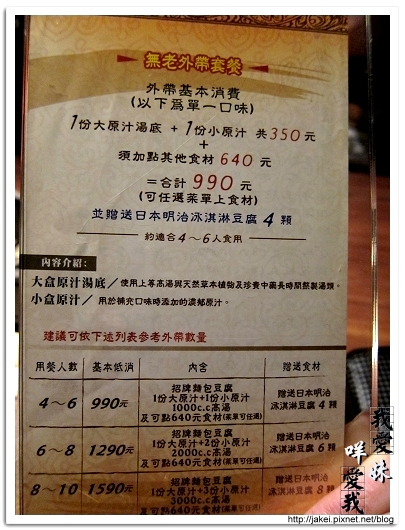 無老外帶套餐
外帶基本消費
(以下為單一口味)
1份大原汁湯底 + 1份小原汁 共350元
+
須加點其他食材 640 元
=合計 990 元
(可任選菜單上食材)
並贈送日本明治冰淇淋豆腐 4 顆
約適合4~6人食用
內容介紹:
大盒原汁湯底/使用上等高湯與天然草本植物及珍貴中藥長時間熬製湯頭。
小盒原汁/用於補充口味時添加的濃郁原汁。
建議可依下述列表參考外帶數量
用餐人數 基本低消 內容 贈送食材
4~6 990元 招牌麵包豆腐 1份大原汁+1份小原汁 1000c.c高湯 及可點640元食材(菜單可任選) 贈送日本明治 冰淇淋豆腐 4 顆
6~8 1290元 招牌麵包豆腐 1份大原汁+2份小原汁 2000c.c高湯 及可點640元食材(菜單可任選) 贈送日本明治 冰淇淋豆腐 6 顆
8~10 1590元 招牌麵包豆腐 1份大原汁+3份小原汁 3000c.c高湯 及可點640元食材(菜單可任選) 贈送日本明治 冰淇淋豆腐 8 顆
我愛妹
咩愛我
http://jakei.pixnet.net/blog